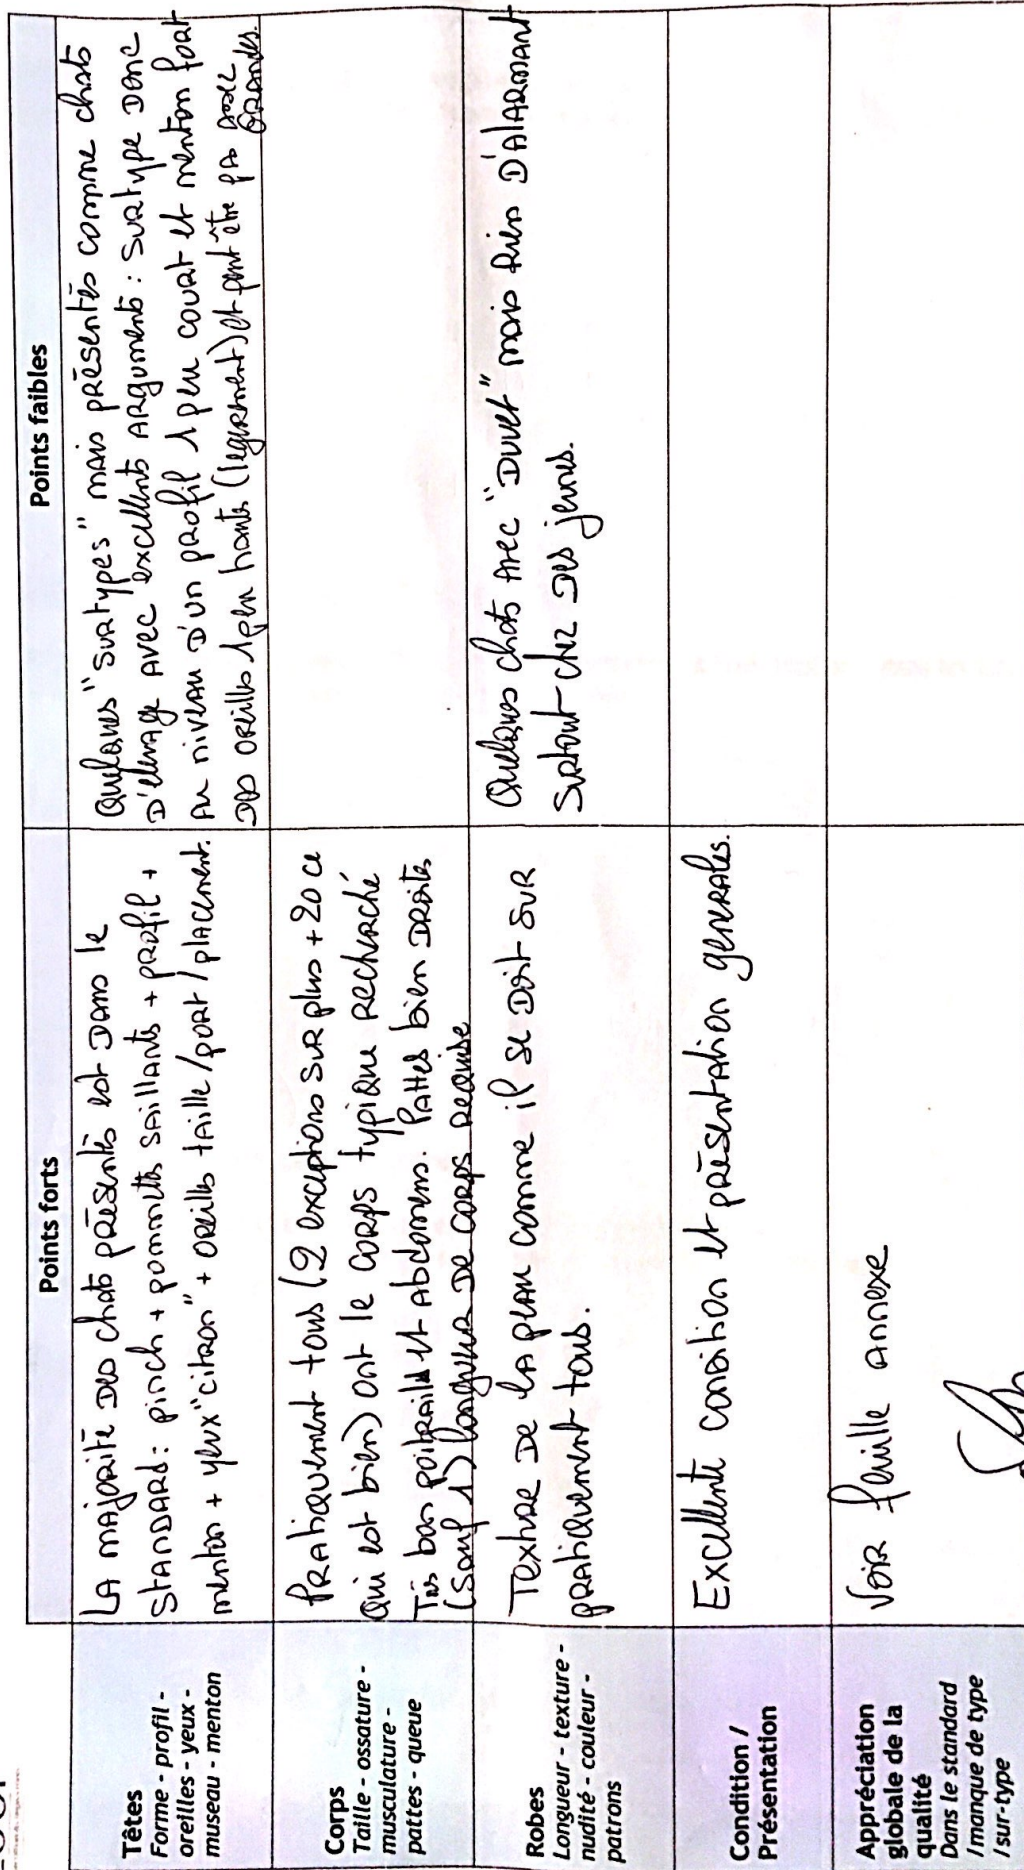 Points forts
Points faibles
Têtes
Forme - profil -
oreilles - yeux -
museau - menton
LA MAJORITÉ DES chats PRÉSENTÉS est DANS le
STANDARD : pinch + pommettes SAILLANTS + PROFIL +
menton + yeux "citron" + OREILLES TAILLE / PORT / PLACEMENT.
Quelques "SURtypes" MAIS PRÉSENTÉS comme chats
D'élevage AVEC excellents ARGUMENTS : SURtype DONC
AU NIVEAU D'UN PROFIL 1 peu court et menton fort
DES OREILLES 1 peu hautes (legerement) et peut être pas assez
GRANDES.
Corps
Taille - ossature -
musculature -
pattes - queue
PRAtiquement tous (2 exceptions SUR plus + 20 ce
qui est bien) ont le CORPS typique RECHERCHÉ
Très bon poitrail et Abdomens. Pattes bien DROITES
(Sauf 1) longueur DE CORPS REQUISE
Robes
Longueur - texture -
nudité - couleur -
patrons
Texture DE LA PEAU comme il SE DOIT SUR
PRATIQUEMENT tous.
Quelques chats AVEC "DUVET" mais Rien D'ALARMANT
SURTOUT chez DES jeunes.
Condition /
Présentation
Excellente condition et PRÉSENTATION GENERALES.
Appréciation
globale de la
qualité
Dans le standard
/ manque de type
/ sur-type
VOIR feuille ANNEXE